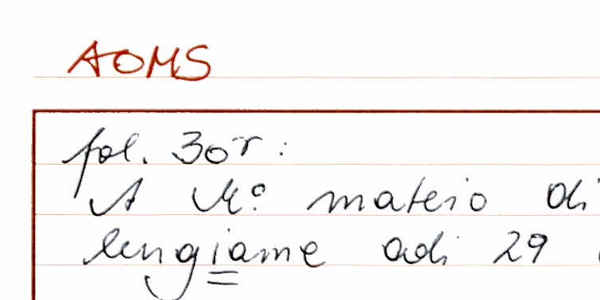 AOMS
fol. 30r:
A Mº mateio di
lengiame adi 29